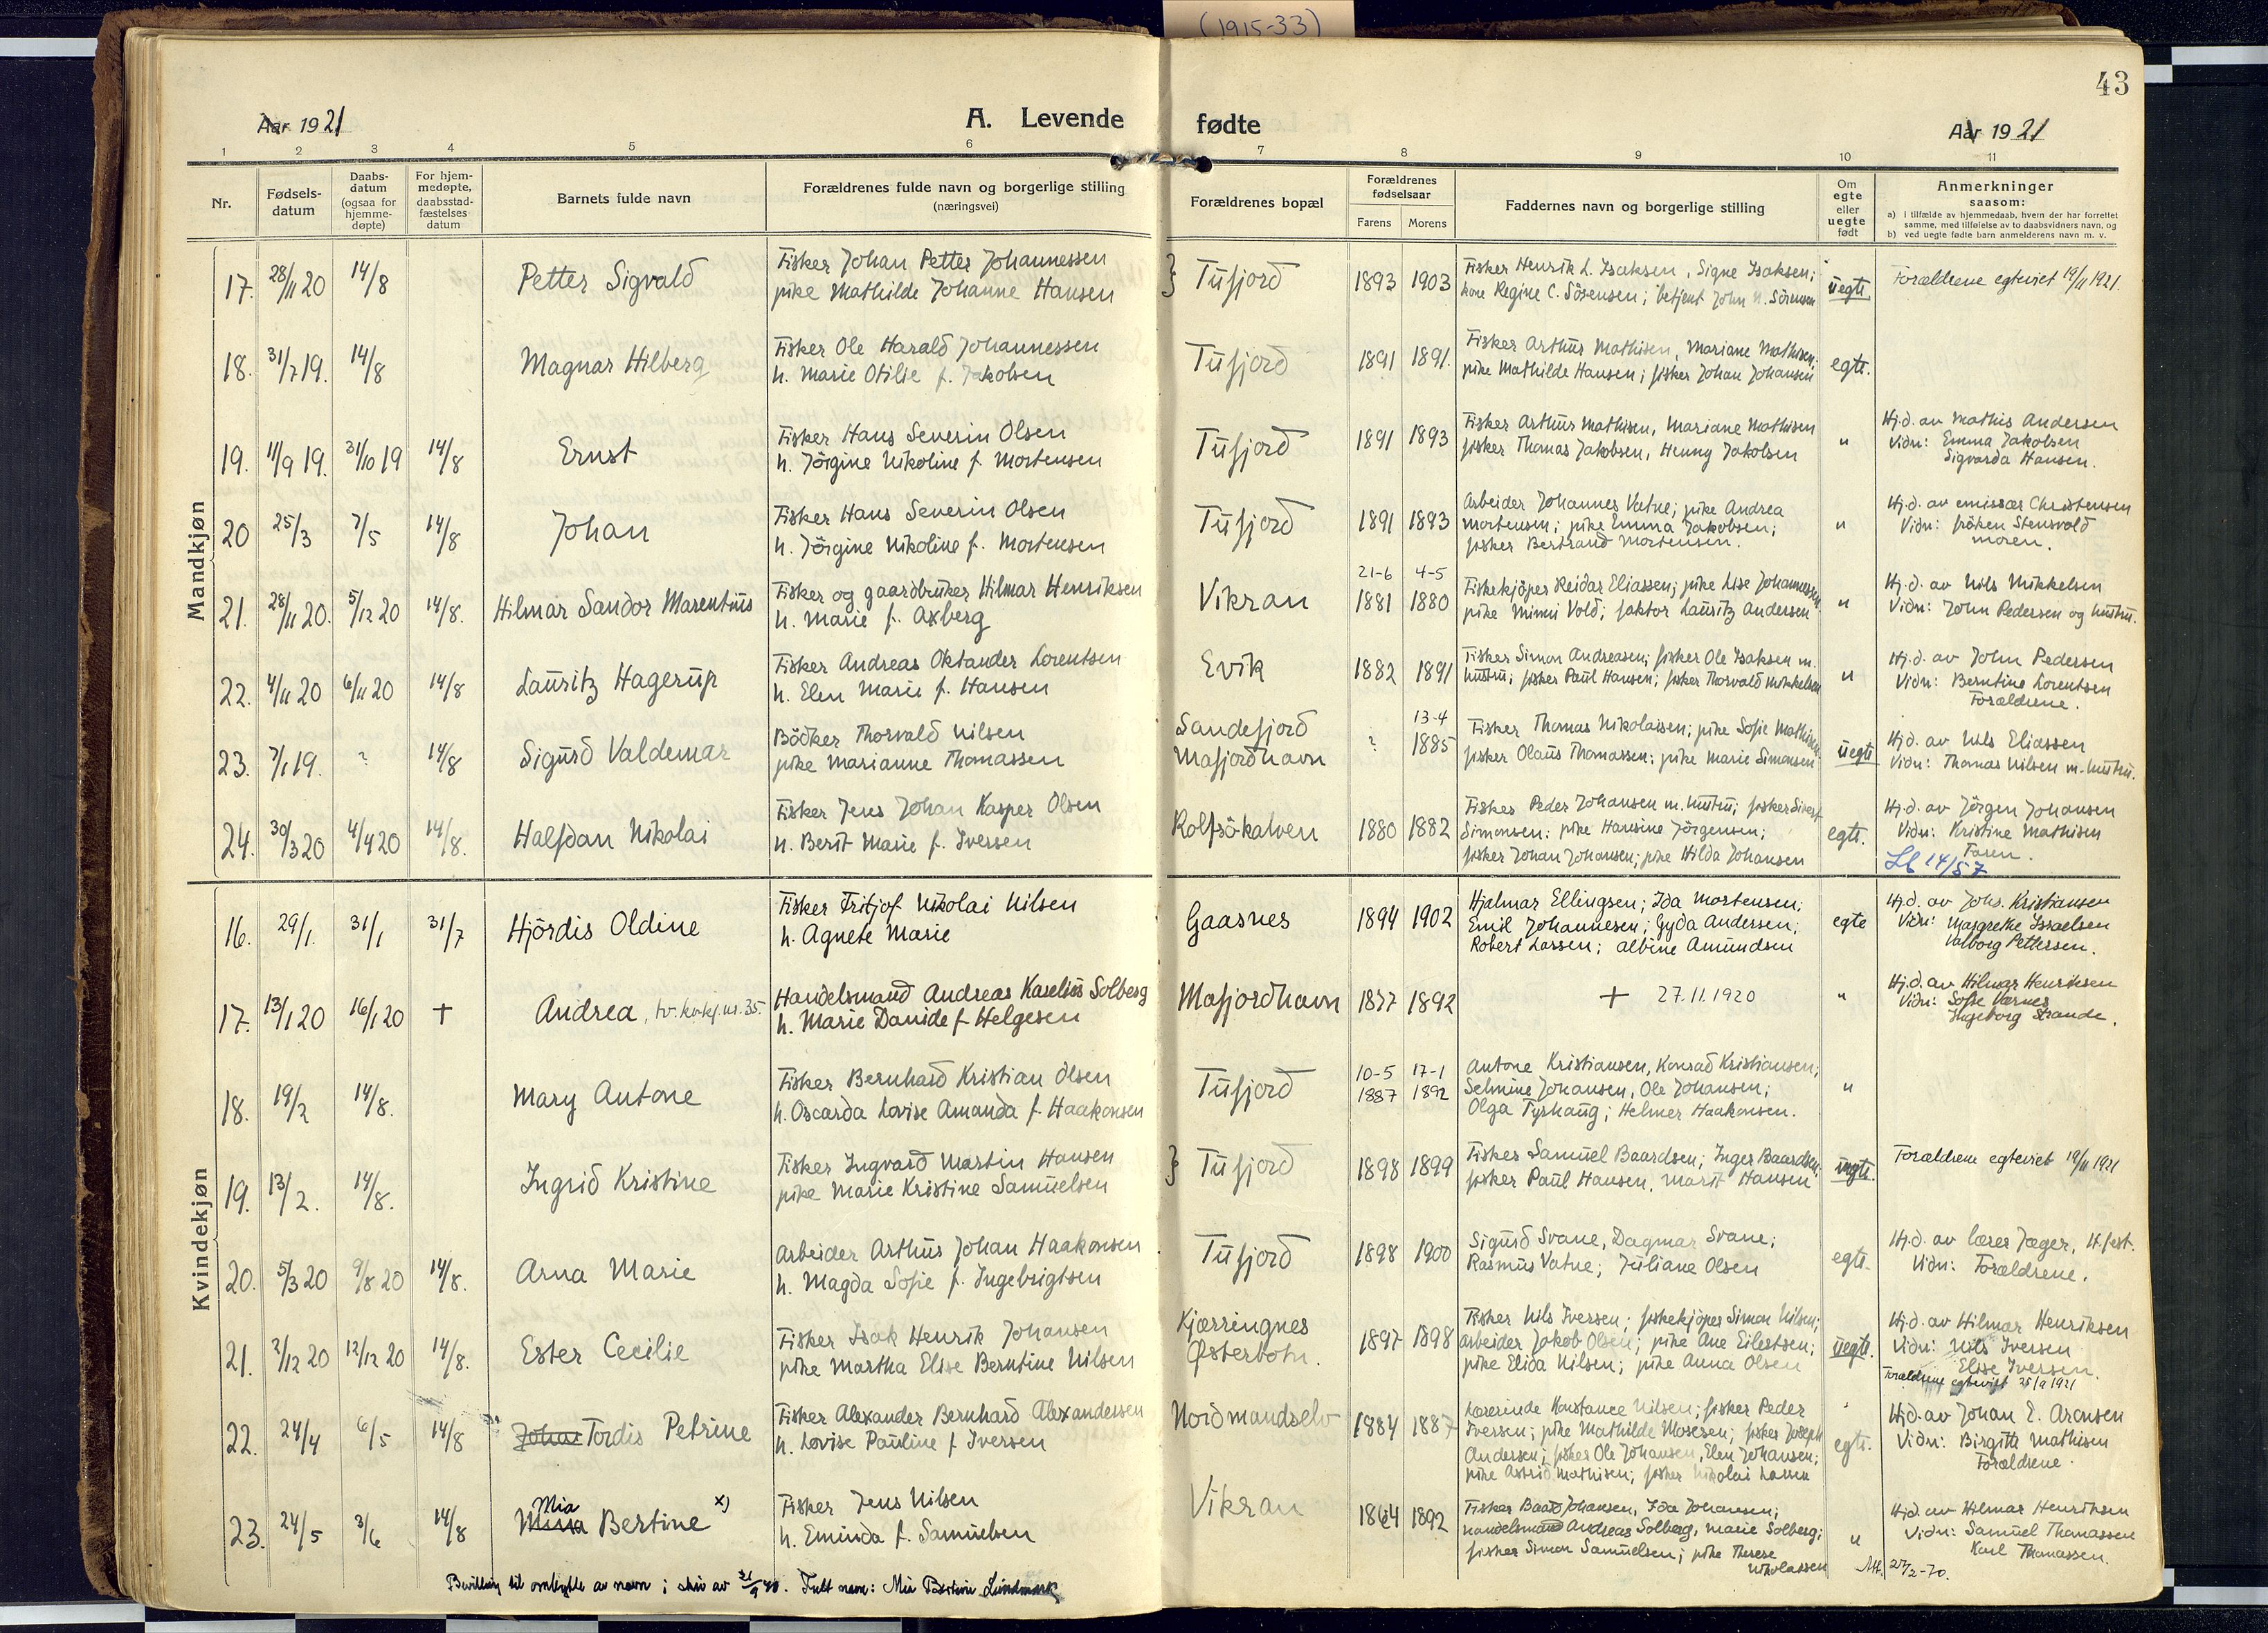 (1915-33)
43
Aar 1921
A. Levende fødte
Aar 1921
1 2 3 4 5 6 7 8 9 10 11
Nr.
Fødsels-
datum
Daabs-
datum
(ogsaa for
hjemme-
døpte)
For hjem-
medøpte,
daabsstad-
fæstelses
datum
Barnets fulde navn
Forældrenes fulde navn og borgerlige stilling
(næringsvei)
Forældrenes bopæl
Forældrenes
fødselsaar
Farens Morens
Faddernes navn og borgerlige stilling
Om
egte
eller
uegte
født
Anmerkninger
saasom:
a) i tilfælde av hjemmedaab, hvem der har forrettet
samme, med tilføielse av to daabsvidners navn, og
b) ved uegte fødte barn anmelderens navn m. v.
Mandkjøn
17. 28/11 20 14/8 Petter Sigvald
Fisker Johan Petter Johannessen
pike Mathilde Johanne Hansen
Tufjord 1893 1903
Fisker Henrik L. Isaksen, Signe Isaksen;
kone Regine C. Sörensen; betjent John N. Sörensen
uegte. Forældrene egteviet 19/11 1921.
18. 31/7 19. 14/8 Magnar Hilberg
Fisker Ole Harald Johannessen
h. Marie Otilie f. Jakobsen
Tufjord 1891 1891.
Fisker Arthur Mathisen, Mariane Mathisen;
pike Mathilde Hansen; fisker Johan Johansen
egte.
19. 11/9 19. 31/10 19 14/8 Ernst
Fisker Hans Severin Olsen
h. Jörgine Nikoline f. Mortensen
Tufjord 1891 1893
Fisker Arthur Mathisen, Mariane Mathisen
fisker Thomas Jakobsen, Henny Jakobsen
"
Hj.d. av Mathis Andersen
Vidn: Emma Jakobsen
Sigvarda Hansen.
20 25/3 7/5 14/8 Johan
Fisker Hans Severin Olsen
h. Jörgine Nikoline f. Mortensen
Tufjord 1891 1893
Arbeider Johannes Vatne; pike Andrea
Mortensen; pike Emma Jakobsen;
fisker Bertrand Mortensen.
"
Hj.d. av emissær Christensen
Vidn: fröken Stensvold
moren.
21. 28/11 20. 5/12 20 14/8. Hilmar Sandor Marentius
Fisker og gaardbruker Hilmar Henriksen
h. Marie f. Axberg
Vikran 21-6 1881 4-5 1880
Fiskekjöper Reidar Eliassen; pike Lise Johannessen
pike Mimi Vold; faktor Lauritz Andersen
"
Hj.d. av Nils Mikkelsen
Vidn: John Pedersen og hustru.
22. 4/11 20 6/11 20 14/8 Lauritz Hagerup
Fisker Andreas Oktander Lorentsen
h. Elen Marie f. Hansen
Evik 1882 1891
Fisker Simon Andreasen; fisker Ole Isaksen m.
hustru; fisker Paul Hansen; fisker Thorvald Mikkelsen
"
Hj.d. av John Pedersen
Vidn: Berntine Lorentsen
Forældrene.
23. 7/1 19. ? 14/8 Sigurd Valdemar
Bödker Thorvald Nilsen
pike Marianne Thomassen
Sandefjord
Mafjordhavn
? 13-4 1885
Fisker Thomas Nikolaisen; pike Sofie Mathisen
fisker Olaus Thomassen; pike Marie Simonsen
uegte
Hj.d. av Nils Eliassen
Vidn: Thomas Nilsen m. hustru.
24. 30/3 20 4/4 20 14/8. Halfdan Nikolai
Fisker Jens Johan Kasper Olsen
h. Berit Marie f. Iversen
Rolfsökalven 1880 1882
Fisker Peder Johansen m. hustru; fisker Sivert
Simonsen; pike Hansine Jörgensen;
fisker Johan Johansen; pike Hilda Johansen
egte.
Hj.d. av Jörgen Johansen
Vidn: Kristine Mathisen
Faren.
Lb 14/57
Kvindekjøn
16. 29/1. 31/1 31/7 Hjördis Oldine
Fisker Fritjof Nikolai Nilsen
h. Agnete Marie
Gaasnes 1894 1902
Hjalmar Ellingsen; Ida Mortensen;
Emil Johannesen; Gyda Andersen;
Robert Larsen; Albine Amundsen
egte
Hj.d. av Johs. Kristiansen
Vidn: Margrethe Israelsen
Valborg Pettersen.
17. 13/1 20 16/1 20 + Andrea, tv. kv.kj. nr. 35.
Handelsmand Andreas Kaselius Solberg
h. Marie Danide f. Helgesen
Mafjordhavn 1877 1892
+ 27.11.1920
"
Hj.d. av Hilmar Henriksen
Vidn: Sofie Værnes
Ingeborg Strande.
18. 19/2 14/8. Mary Antone
Fisker Bernhard Kristian Olsen
h. Oscarda Lovise Amanda f. Haakonsen
Tufjord 10-5 1887 17-1 1892
Antone Kristiansen, Konrad Kristiansen;
Selmine Johansen, Ole Johansen;
Olga Tyrhaug; Helmer Haakonsen.
"
19. 13/2. 14/8. Ingrid Kristine
Fisker Ingvard Martin Hansen
pike Marie Kristine Samuelsen
Tufjord 1898 1899
Fisker Samuel Baardsen; Inger Baardsen;
fisker Paul Hansen, Marit Hansen
uegte.
Forældrene egteviet 19/11 1921
20. 5/3 20 9/8 20 14/8. Arna Marie
Arbeider Arthur Johan Haakonsen
h. Magda Sofie f. Ingebrigtsen
Tufjord 1898 1900
Sigurd Svane, Dagmar Svane;
Rasmus Vatne; Juliane Olsen
egte.
Hj.d. av lærer Jæger, H.fest.
Vidn: Forældrene.
21. 2/12 20 12/12 20 14/8. Ester Cecilie
Fisker Isak Henrik Johansen
pike Martha Elise Berntine Nilsen
Kjærringnes
Østerbotn.
1897 1898
Fisker Nils Iversen; fiskekjöper Simon Nilsen;
arbeider Jakob Olsen; pike Ane Eilertsen;
pike Elida Nilsen; pike Anna Olsen
uegte.
Hj.d. av Hilmar Henriksen
Vidn: Nils Iversen
Elise Iversen.
Forældrene egteviet 25/9 1921
22. 24/4 6/5 14/8 Johan Tordis Petrine
Fisker Alexander Bernhard Alexandersen
h. Lovise Pauline f. Iversen
Nordmandselv 1884 1887
Lærerinde Konstance Nilsen; fisker Peder
Iversen; pike Mathilde Mosesen; fisker Joseph
Andersen; fisker Ole Johansen, Elen Johansen;
pike Astrid Mathisen; fisker Nikolai Larsen
egte.
Hj.d. av Johan E. Arensen
Vidn: Birgitte Mathisen
Forældrene.
23. 24/5 3/6 14/8 Mina Mia Bertine x)
Fisker Jens Nilsen
h. Eminda f. Samuelsen
Vikran 1864 1892
Fisker Baard Johansen, Ida Johansen;
handelsmand Andreas Solberg, Marie Solberg;
fisker Simon Samuelsen; pike Therese
Nikolaisen
"
Hj.d. av Hilmar Henriksen
Vidn: Samuel Thomassen
Karl Thomassen.
Att. 27/2-70.
Bevilling til ombytte av navn i skriv av 21/9 40. Fult navn: Mia Bertine Lindmark